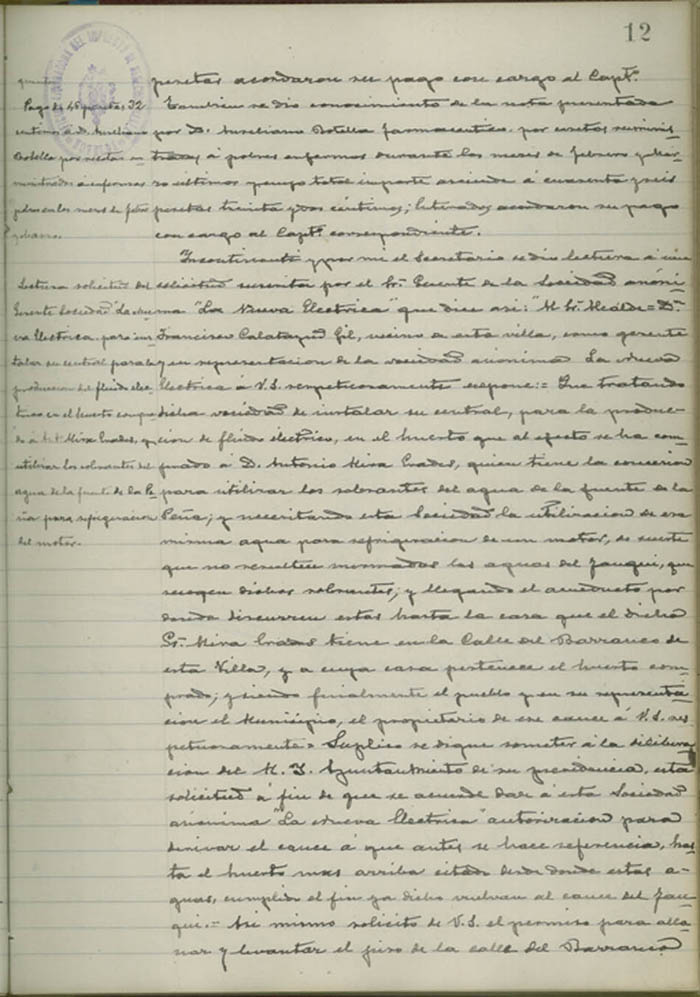 12
quientes
Pago de 46 pesetas 32
centimos á D. Aureliano
Botella por recetas su
ministradas a enfermos
pobres en los meses de febro
y Marzo.
Lectura solicitud del
Gerente Sociedad La Nue
va Electrica, para ins
talar su central para la
produccion del fluido elec
trico en el huerto compra
do á D. A. Mira Erades, y
utilizar los sobrantes del
agua de la fuente de la Pe
ña para refrigeracion
del motor.
pesetas acordaron su pago con cargo al Captº.
Tambien se dio conocimiento de la nota presentada
por D. Aureliano Botella farmaceutico. por recetas suminis
tradas á pobres enfermos durante los meses de febrero y Mar
zo ultimos y cuyo total importe asciende á cuarenta y seis
pesetas treinta y dos céntimos; Enterados acordaron su pago
con cargo al Captº. correspondiente.
Incontinenti y por mi el Secretario se dio lectura á una
solicitud suscrita por el Sr. Gerente de la Sociedad anóni
ma "La Nueva Electrica" que dice asi: "M. Sr. Alcalde = Dn.
Francisco Calatayud Gil, vecino de esta villa, como gerente
y en representacion de la sociedad anónima La Nueva
Electrica á V.S. respetuosamente expone: = Que tratando
dicha sociedad de instalar su central, para la produc-
cion de fluido electrico, en el huerto que al efecto se ha com-
prado á D. Antonio Mira Erades, quien tiene la concesion
para utilizar los sobrantes del agua de la fuente de la
Peña; y necesitando esta Sociedad la utilizacion de esa
misma agua para refrigeracion de un motor, de suerte
que no resulten mermadas las aguas del Fauqui, que
recogen dichos sobrantes; y llegando el acueducto por
donde discurren estas hasta la casa que el dicho
Sr. Mira Erades tiene en la Calle del Barranco de
esta Villa, y a cuya casa pertenece el huerto com-
prado; y siendo finalmente el pueblo y en su representa
cion el Municipio, el propietario de ese cauce á V.S. res
petuosamente = Suplico se digne someter á la delibera
cion del M. I. Ayuntamiento de su presidencia, esta
solicitud á fin de que se acuerde dar á esta Sociedad
anónima "La Nueva Electrica" autorizacion para
derivar el cauce á que antes se hace referencia, has
ta el huerto mas arriba citado desde donde estas a-
guas, cumplido el fin ya dicho vuelvan al cauce del Fau
qui. = Asi mismo solicito de V.S. el permiso para alla
nar y levantar el piso de la calle del Barranco